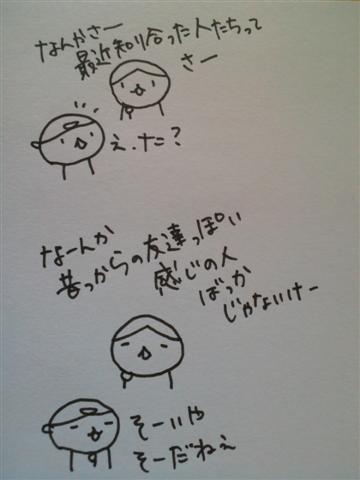 なんかさー
最近知り合った人たちって
さー
え、なに?
なーんか
昔っからの友達っぽい
感じの人
ばっか
じゃないけー
そーいや
そーだねぇ